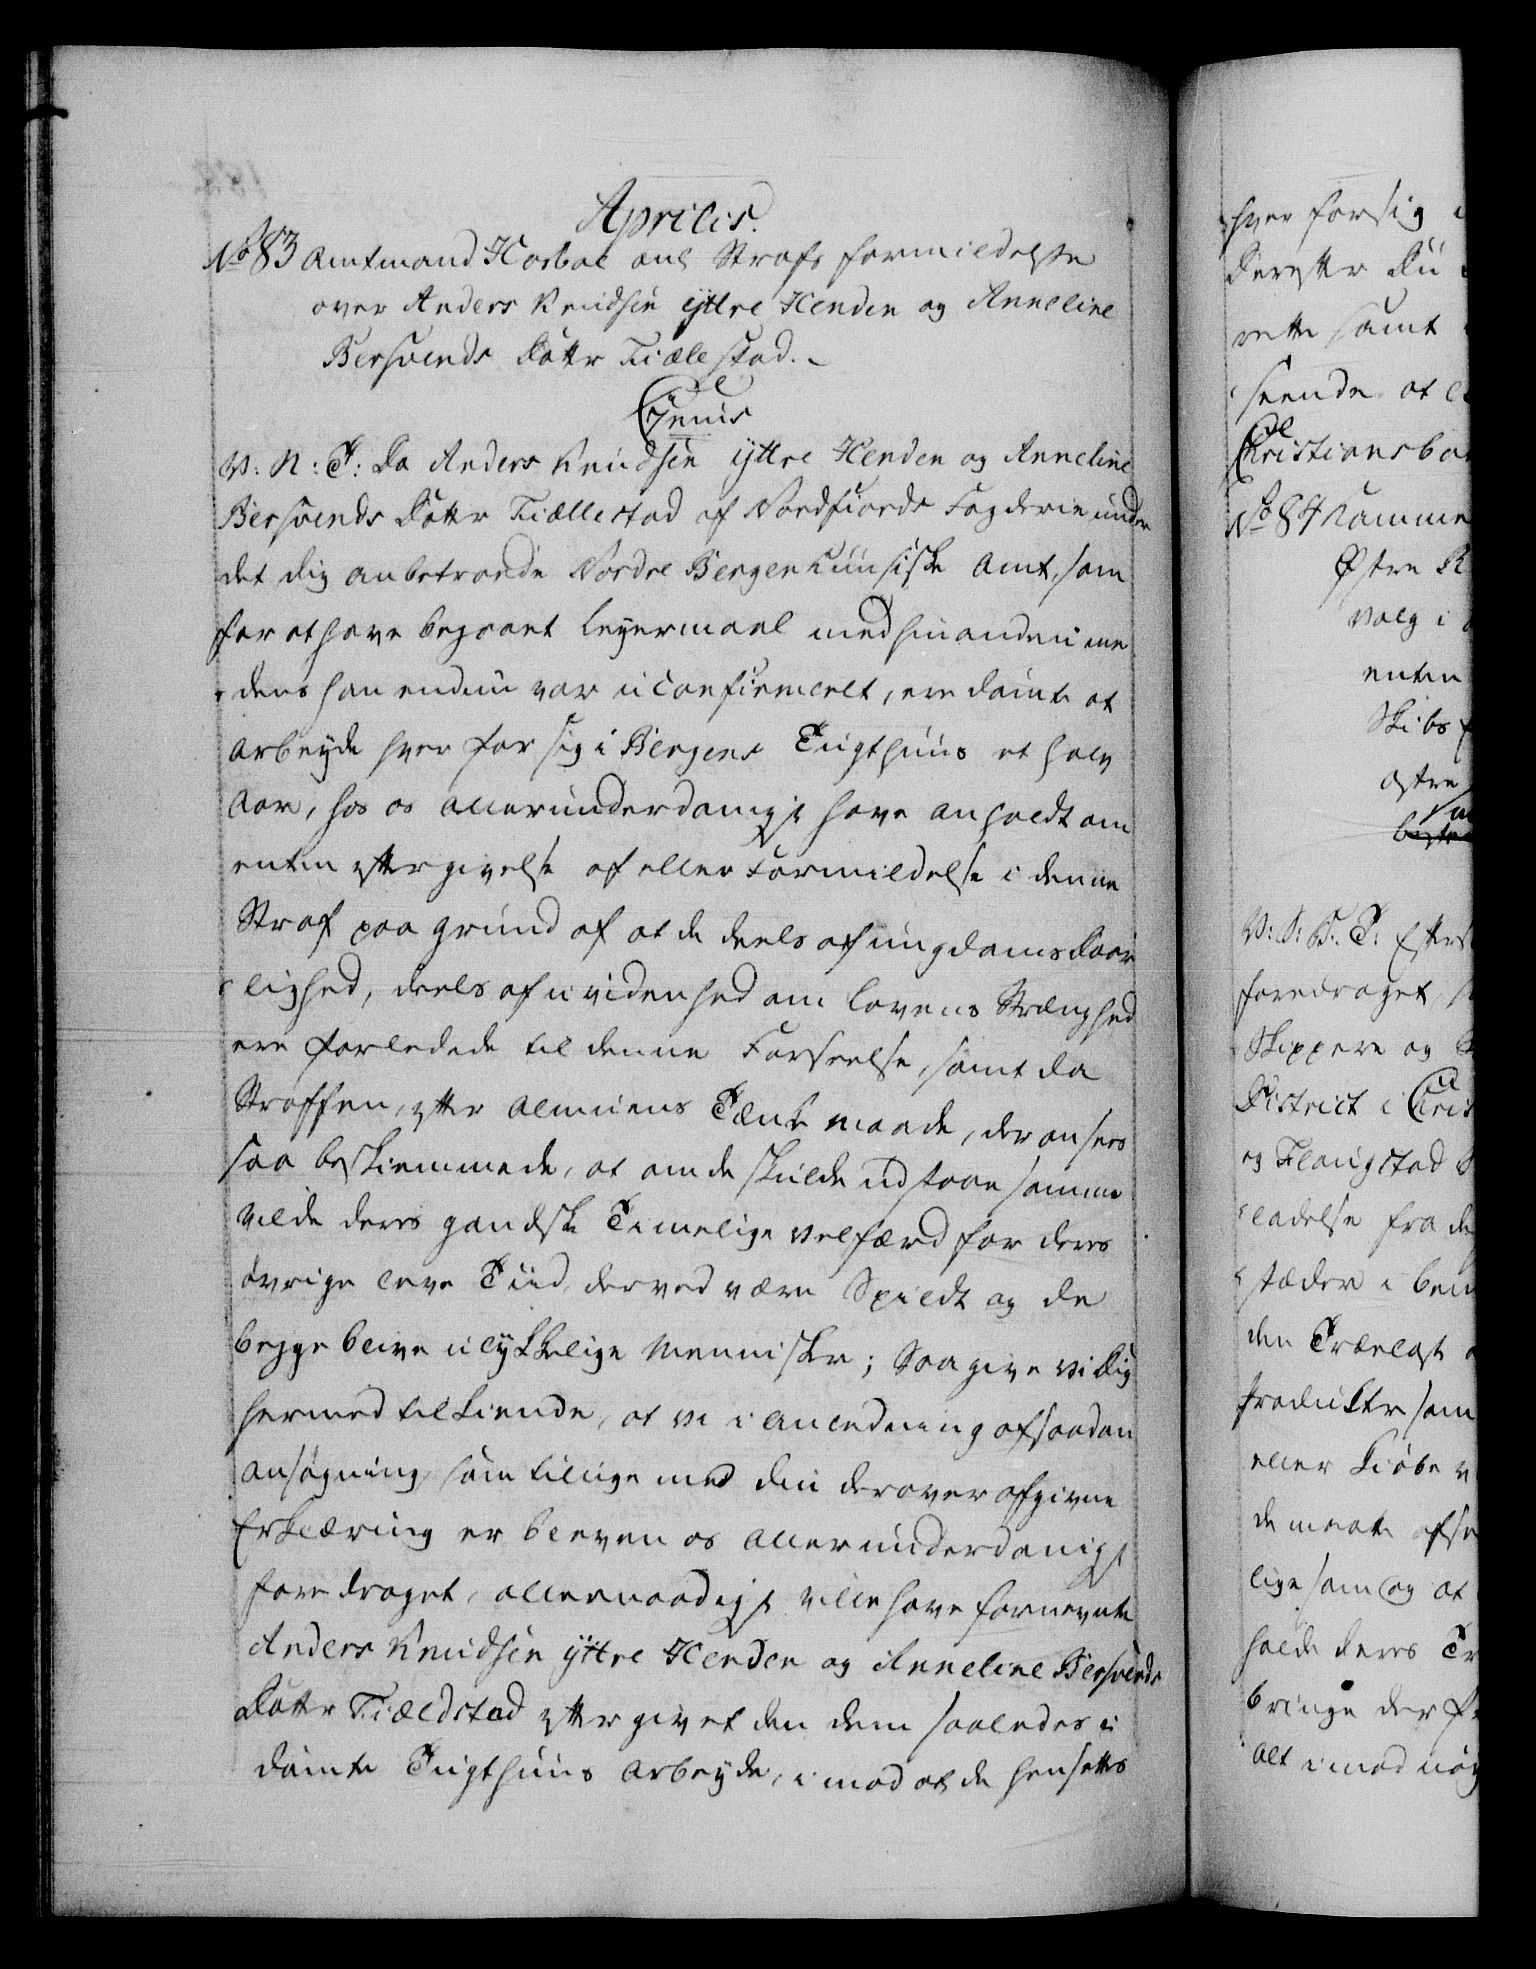 Aprilis.
No 83 Amtmand Horboe anl Strafs formildelse
over Anders Knudsen ÿttre Henden og Anneline
Bersvends Datter Fiælestad.
C 7enus
V: N: T: Da Anders Knudsen ÿttre Henden og Anneline
Bersvends Datter Fiællestad af Nordfiords Fogderie under
det dig anbetroede Nordre Bergenhuusiske Amt, som
for at have begaaet Leyermaal med hinanden i me¬
dens han endnu var uconfirmeret, ere dømte at
arbeyde hver for sig i Bergens Tugthuus et halv
Aar, hos os allerunderdanigst have anholdt om
enten eftergivelse af eller Formildelse i denne
Straf paa grund af at de deels af ungdoms Daar¬
lighed, deels af uvidenhed om Lovens Strænghed
ere forledede til denne Forseelse, samt da
Straffen, efter Almuens Tænke maade, der ansees
saa beskiemmende, at om de skulde udstaae samme
vilde deres gandske Timelige velfærd for deres
øvrige leve Tiid derved være Spildt og de
begge blive ulykkelige Mennisker; Saa give vi Dig
hermed tilkiende, at vi i anledning af saadan
ansøgning, som tillige med din derover afgivne
Erklæring er bleven os allerunderdanigst
fore draget, allernaadigst ville have fornevnte
Anders Knudsen ÿttre Henden og Anneline Bersvends
Datter Fiældstad eftergivet den dem saaledes i¬
dømte Tugthuus Arbeyde, imod at de hensettes
hver for sig
Derefter Du
rette samt
seende at
Christiansbor
No 84 Kamme
Østre R
valg i
enten
Skibs
østre
V: S: B: T: Efters
foredraget,
Skippere og
District i Chris
og Flougstad
ladelse fra de
stæder i
den Trælast
Produkter som
eller kiøbe
de maate
lige som og at
holde deres Tr
bringe der
alt imod